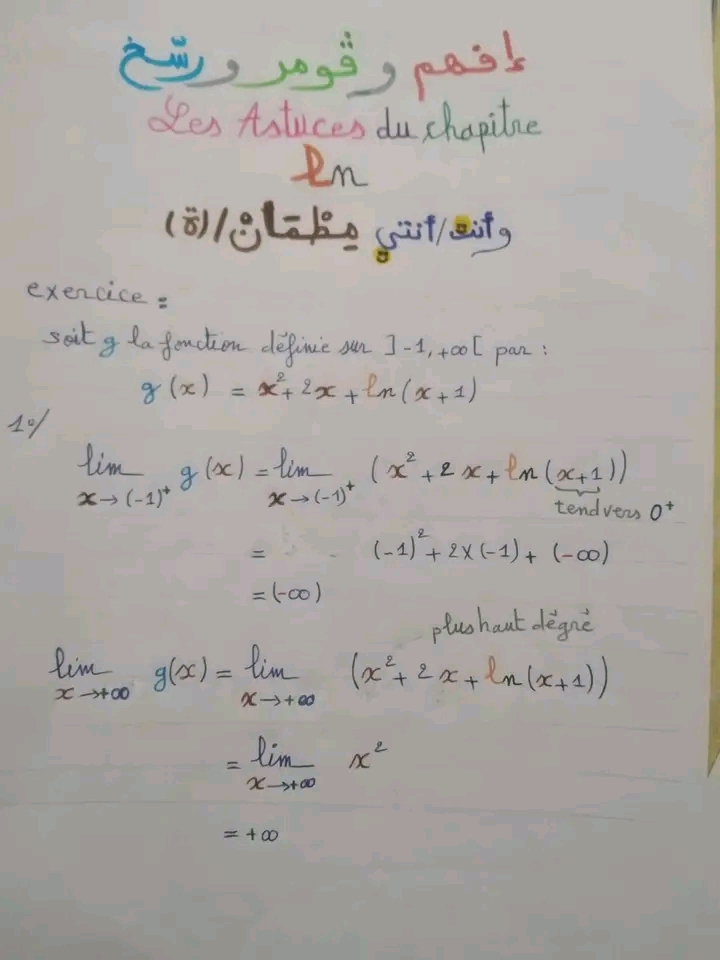 إفهم وڨومر ورسّخ
Les Astuces du chapitre
ln
وأنت/أنتي مِطْمَانْ/(ة)
exercice :
soit g la fonction définie sur ]-1,+∞[ par :
g(x) = x²+2x+ln(x+1)
1°/
lim x→(-1)⁺ g(x) = lim x→(-1)⁺ (x²+2x+ln(x+1))
tend vers 0⁺
= (-1)²+2×(-1)+(-∞)
= (-∞)
plus haut dégré
lim x→+∞ g(x) = lim x→+∞ (x²+2x+ln(x+1))
= lim x→+∞ x²
= +∞